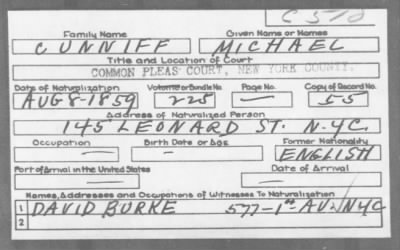 C 510
Family Name Given Name or Names
CUNNIFF MICHAEL
Title and Location of Court
COMMON PLEAS COURT, NEW YORK COUNTY.
Date of Naturalization Volume or Bundle No. Page No. Copy of Record No.
AUG 8-1859 225 — 55
Address of Naturalized Person
145 LEONARD ST. N.Y.C.
Occupation Birth Date or Age Former Nationality
— — ENGLISH
Port of Arrival in the United States Date of Arrival
— —
Names, Addresses and Occupations of Witnesses To Naturalization
1 DAVID BURKE 577-1st AV. NYC
2